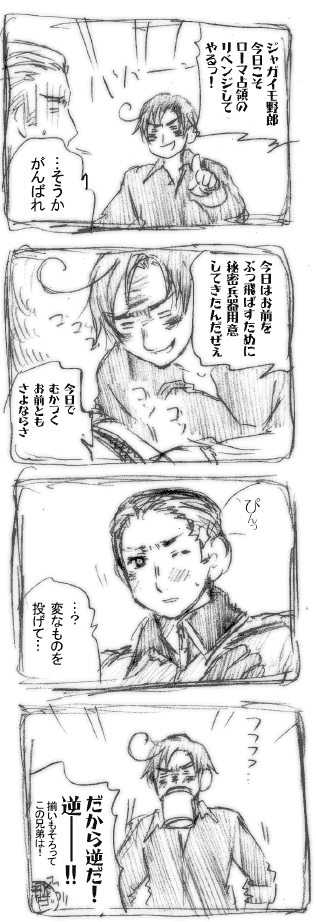 ジャガイモ野郎
今日こそ
ローマ占領の
リベンジして
やるっ！
…そうか
がんばれ
今日はお前を
ぶっ飛ばすために
秘密兵器用意
してきたんだぜぇ
ゴソ
ゴソ
今日で
むかつく
お前とも
さよならさ
ぴんっ
…？
変なものを
投げて…
フフフフ…
だから逆だ！
逆──！！
揃いもそろって
この兄弟は！